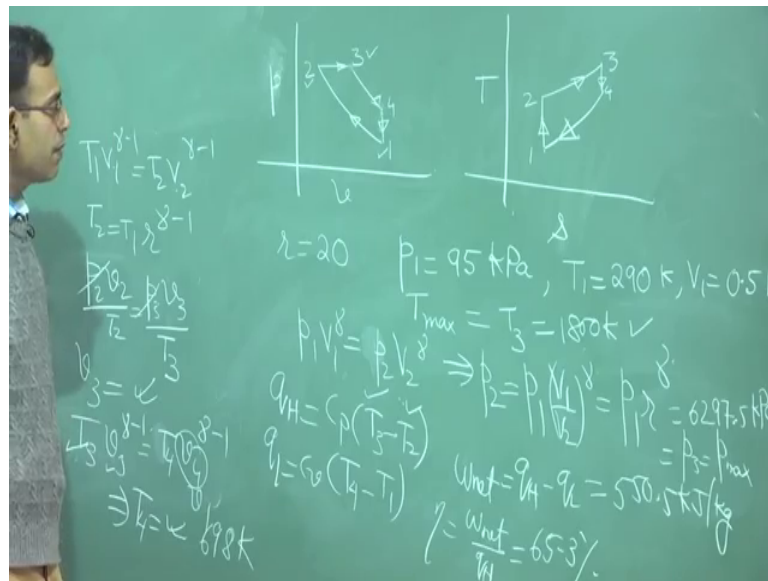 p
2
3
4
1
v
T
2
3
4
1
s
T₁V₁^(γ-1) = T₂V₂^(γ-1)
T₂ = T₁ r^(γ-1)
p₂v₂/T₂ = p₃v₃/T₃
v₃ = ✓
T₃v₃^(γ-1) = T₄v₄^(γ-1)
⇒ T₄ = ✓ 698K
r = 20
p₁ = 95 kPa, T₁ = 290 K, V₁ = 0.5
T_max = T₃ = 1800K ✓
p₁V₁^γ = p₂V₂^γ ⇒ p₂ = p₁(V₁/V₂)^γ = p₁r^γ = 6297.5 kPa
= p₃ = p_max
q_H = C_p(T₃-T₂)
q_L = C_v(T₄-T₁)
w_net = q_H - q_L = 550.5 kJ/kg
η = w_net/q_H = 65.3%